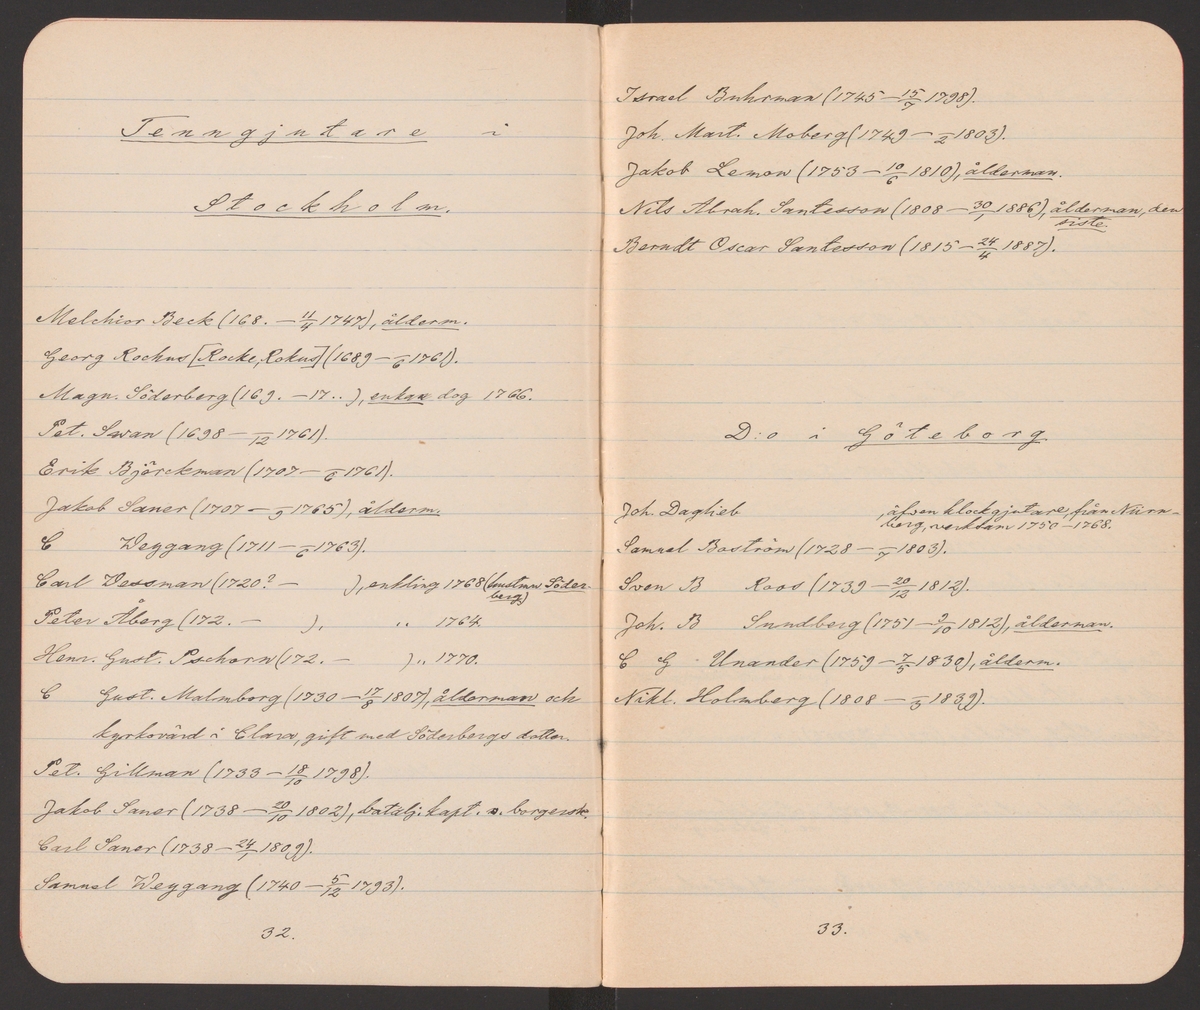 Tenngjutare i
Stockholm.
Melchior Beck (168. – 11/4 1747), ålderm.
Georg Rochus [Rocke, Rokus] (1689 – /6 1761).
Magn. Söderberg (169. – 17..), enkan dog 1766.
Pet. Swan (1698 – /12 1761).
Erik Björckman (1707 – /6 1761).
Jakob Saner (1707 – /9 1765), ålderm.
C Weygang (1711 – /6 1763).
Carl Wessman (1720? – ), enkling 1768 (hustrun Söder-
berg)
Peter Åberg (172. – ), " 1764.
Henr. Gust. Pschorn (172. – ) " 1770.
C Gust. Malmborg (1730 – 17/8 1807), ålderman och
kyrkovärd i Clara, gift med Söderbergs dotter.
Pet. Gillman (1733 – 18/10 1798).
Jakob Saner (1738 – 20/10 1802), batalj. kapt. v. borgersk.
Carl Saner (1738 – 24/1 1809).
Samuel Weygang (1740 – 5/12 1793).
32.
Israel Buhrman (1745 – 15/7 1798).
Joh. Mart. Moberg (1749 – /2 1803).
Jakob Lemon (1753 – 10/6 1810), ålderman.
Nils Abrah. Santesson (1808 – 30/1 1886), ålderman, den
siste.
Berndt Oscar Santesson (1815 – 24/4 1887).
D:o i Göteborg
Joh. Daglieb , äfven klockgjutare, från Nürn-
berg, verksam 1750–1768.
Samuel Boström (1728 – /7 1803).
Sven B Roos (1739 – 20/12 1812).
Joh. B Sundberg (1751 – 9/10 1812), ålderman.
C G Unander (1759 – 7/5 1830), ålderm.
Nikl. Holmberg (1808 – /3 1839).
33.